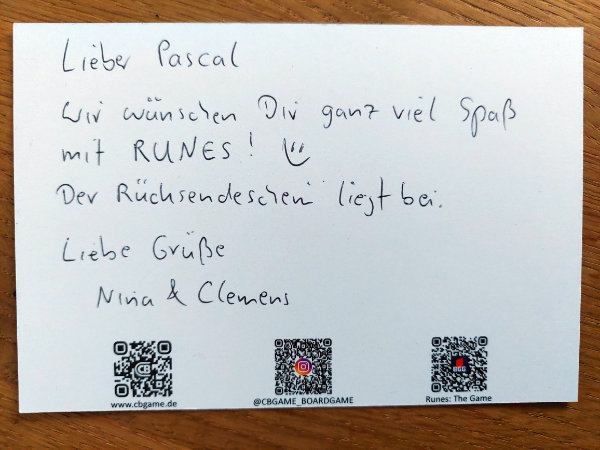 Lieber Pascal
Wir wünschen Dir ganz viel Spaß
mit RUNES!
Der Rücksendeschein liegt bei.
Liebe Grüße
Nina & Clemens
www.cbgame.de
@CBGAME_BOARDGAME
BGG
Runes: The Game